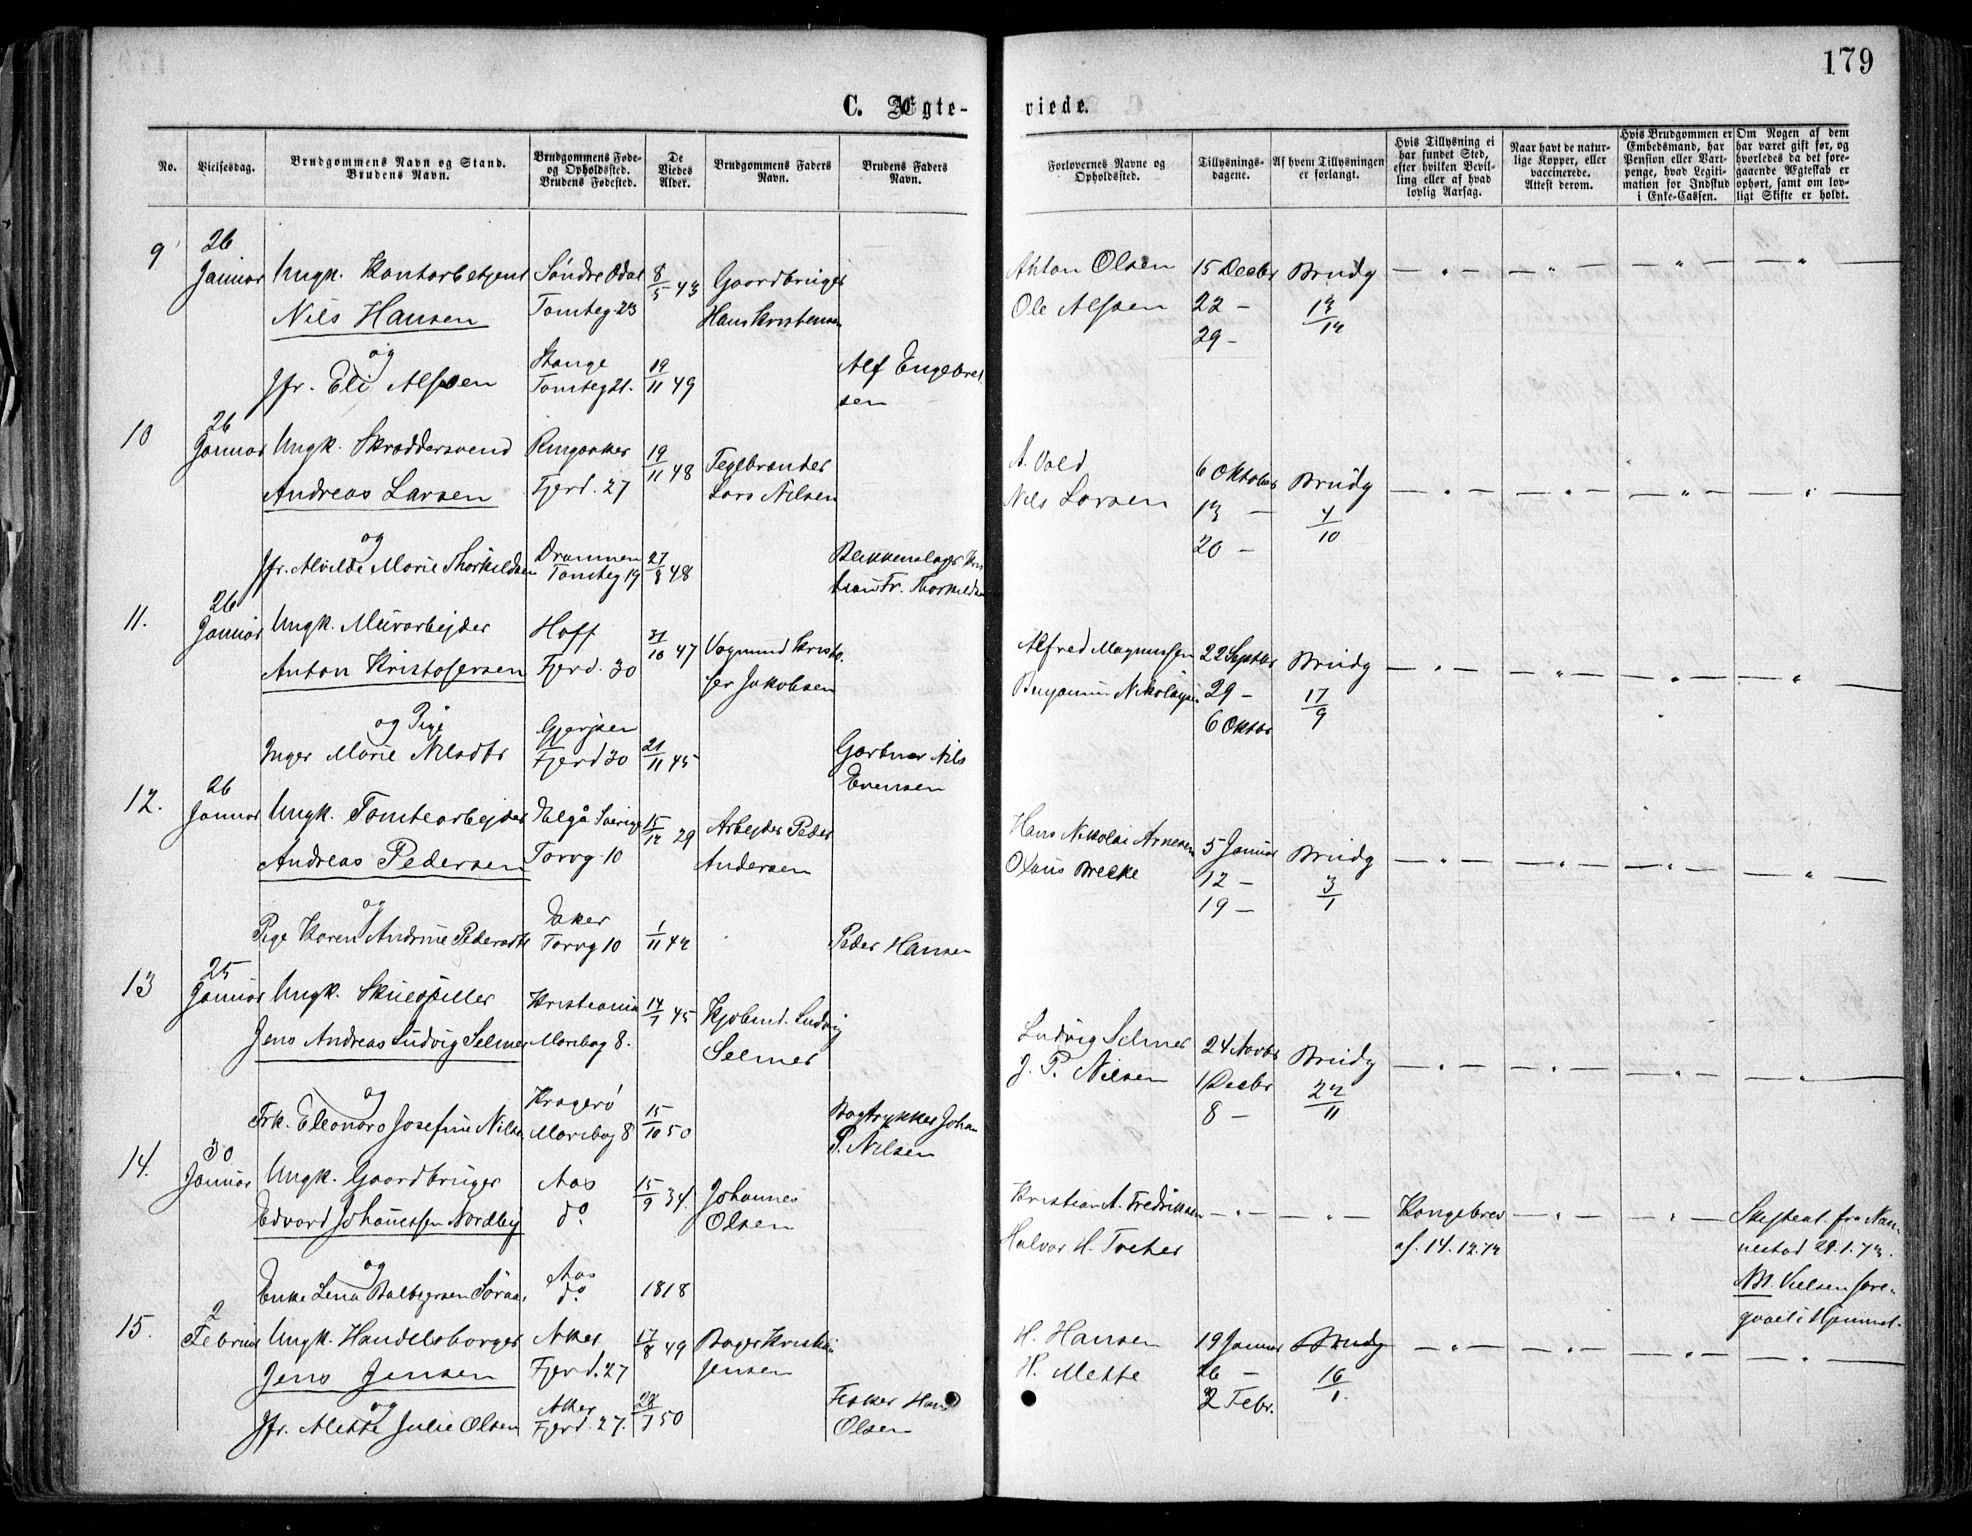 179
C. Ægte-
viede.
No.
Vielsesdag.
Brudgommens Navn og Stand.
Brudens Navn.
Brudgommens Føde-
og Opholdssted.
Brudens Fødested.
De
Viedes
Alder.
Brudgommens Faders
Navn.
Brudens Faders
Navn.
Forlovernes Navne og
Opholdssted.
Tillysnings-
dagene.
Af hvem Tillysningen
er forlangt.
Hvis Tillysning ei
har fundet Sted,
efter hvilken Bevil-
ling eller af hvad
lovlig Aarsag.
Naar havt de natur-
lige Kopper, eller
vaccinerede.
Attest derom.
Hvis Brudgommen er
Embedsmand, har
Pension eller Vart-
penge, hvad Legiti-
mation for Indskud
i Enke-Cassen.
Om Nogen af dem
har været gift før, og
hvorledes da det fore-
gaaende Ægteskab er
ophørt, samt om lov-
ligt Skifte er holdt.
9 26 Januar Ungk. Kontorbetjent Søndre Odal 8/5 43 Gaardbruger
Nils Hansen Tomteg 23 Hans Kristensen
og
Jfr. Eli Alfsen Stange Tomteg 21. 19/11 49 Alf Engebret
sen
Anton Olsen 15 Decbr Brudg
Ole Alfsen 22 — 13/12
29 —
10 26 Januar Ungk. Skræddersvend Ringsaker 19/11 48 Teglbrænder
Andreas Larsen Fjerd. 27 Lars Nilsen
og
Jfr. Alvilde Marie Thorkildsen Drammen Tomteg 19 27/8 48 Blikkenslager Kri
stian Fr. Thorkildsen
A. Vold 6 Oktober Brudg
Nils Larsen 13 — 4/10
20 —
11. 26 Januar Ungk. Murarbejder Hoff 31/10 47 Vognmand Kristo
Anton Kristofersen Fjerd. 30 fer Jakobsen
og Pige
Inger Marie Nilsdtr Gjerjsen Fjerd 30 21/11 45 Gartner Nils
Evensen
Alfred Magnussen 22 Septbr Brudg
Benjamin Nikolaysen 29 — 17/9
6 Oktbr
12. 26 Januar Ungk. Tomtearbejder Elgå Sverige 15/12 29 Arbejder Peder
Andreas Pedersen Torvg 10 Andersen
og
Pige Karen Andrine Pedersdtr Aker Torvg 10 1/11 42 Peder Hansen
Hans Nikolai Arnesen 5 Januar Brudg
Olaus Brekke 12 — 3/1
19 —
13 25 Januar Ungk. Skuespiller Kristiania 14/7 45 Kjøbmd. Ludvig
Jens Andreas Ludvig Selmer Maribog 8. Selmer
og
Frk. Eleonora Josefine Nilsen Kragerø Maribog 8 15/10 50 Bogtrykker Johan
P. Nilsen
Ludvig Selmer 24 Novbr Brudg
J. P. Nilsen 1 Decbr 22/11
8 —
14. 30 Januar Ungk. Gaardbruger Aas 15/9 34. Johannes
Edvard Johannessen Nordby do. Olsen
og
Enke Lena Aas do. 1818
Kristian A. Fredriksen Kongebrev Skifteat. fra Nan-
Halvor H. Treter af. 14.12.72 nestad 29.1.73.
NB. Vielsen fore-
gaaet i Hjemmet.
15. 2 Februar Ungk. Handelsborger Aker 17/8 49 Bager Kristian
Jens Jensen Fjerd. 27 Jensen
og
Jfr. Mette Julie Olsen Aker Fjerd. 27. 50 Fisker Hans
Olsen
H. Hansen 19 Januar Brudg
H. Mette 26 — 16/1.
2 Febr.